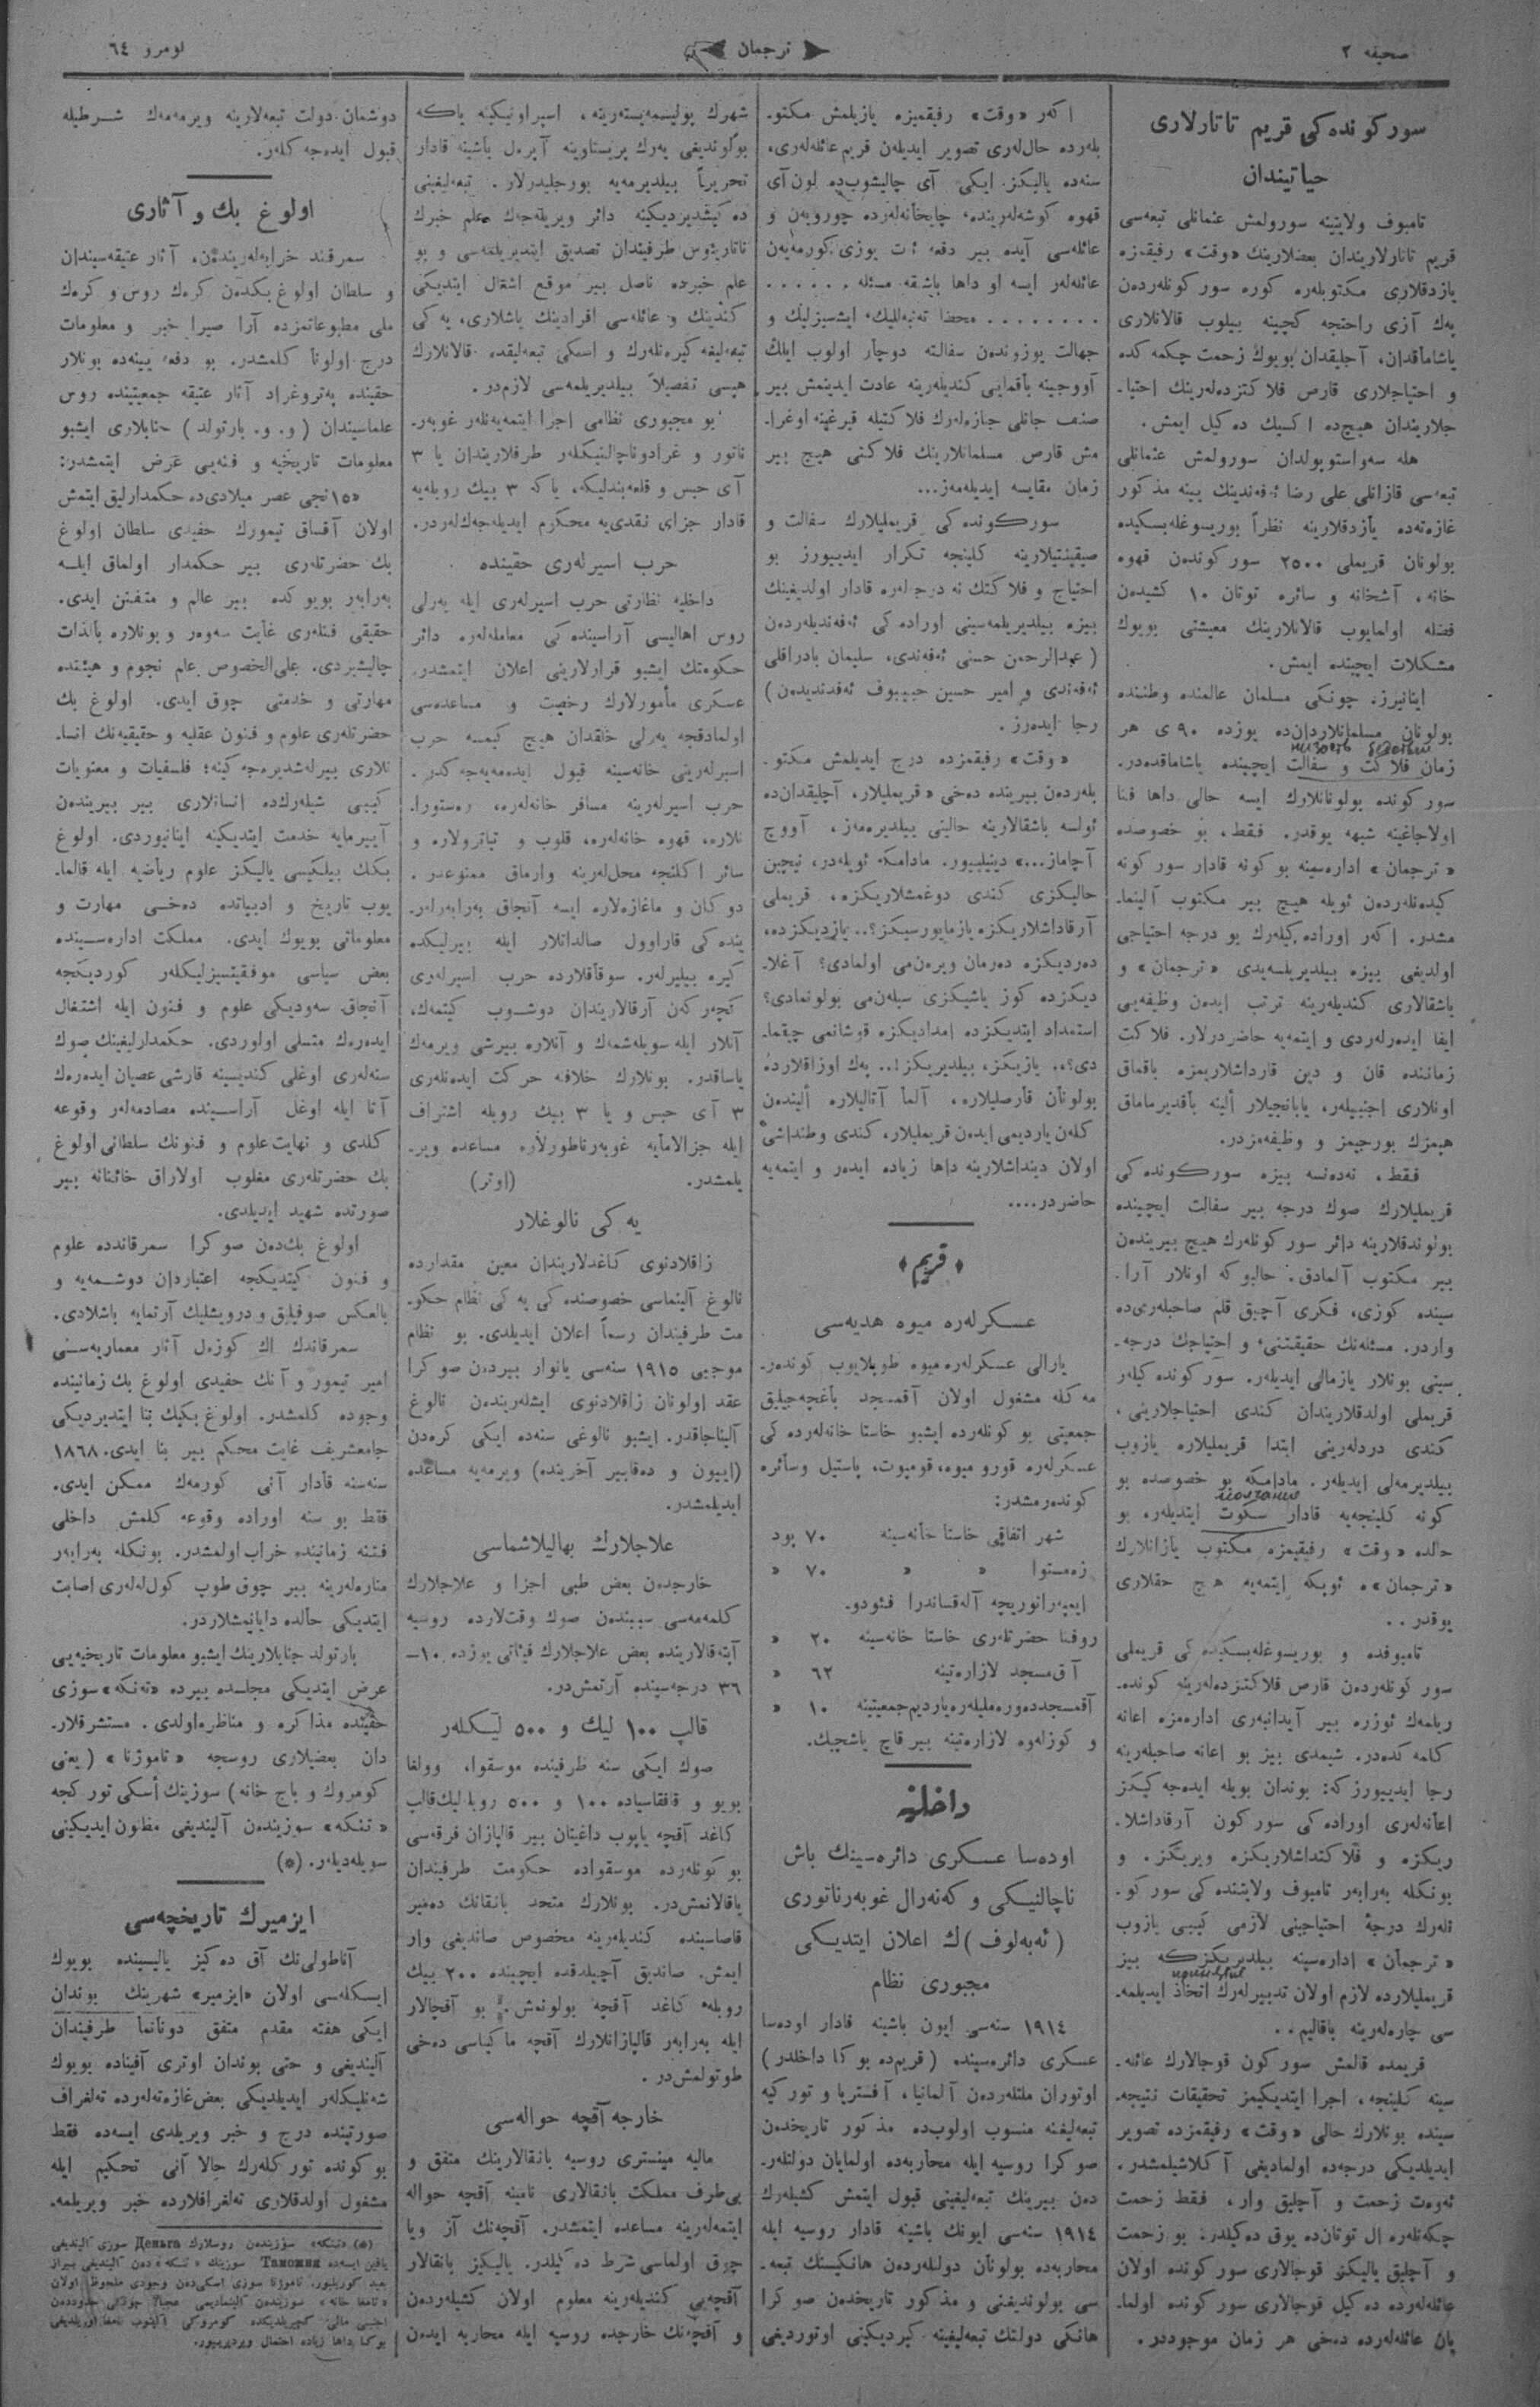 صحیفه ٢
ترجمان
نومرو ٦٤
سورکونده‌کی قریم تاتارلاری
حیاتیندان
تامبوف ولایتینه سورولمش عثمانلی تبعه‌سی
قریم تاتارلاریندان بعضلارینك «وقت» رفیقمزه
یازدقلاری مکتوبلره کوره سورکونلردەن
پەك آزی راحتجه کچینه بیلوب قالانلاری
یاشاماقدان، آجلیقدان بویوك زحمت چکمه‌کده
و احتیاجلاری قارص فلاکتزده‌لرینك احتیا-
جلاریندان هیچ‌ده اکسیك ده‌کیل ایمش.
هله سەواستوپولدان سورولمش عثمانلی
تبعه‌سی قازانلی علی رضا ئه‌فندینك یینه مذکور
غازەتەده یازدقلارینه نظراً بوریسوغلەبسکیده
بولونان قریملی ٢٥٠٠ سورکوندەن قهوه
خانه، آشخانه و سائره توتان ١٠ کشیدەن
فضله اولمایوب قالانلارینك معیشتی بویوك
مشکلات ایچینده ایمش.
اینانیرز. چونکی مسلمان عالمنده وطننده
بولونان مسلمانلاردان‌ده یوزده ٩٠ی هر
زمان فلاکت و سفالت ایچینده یاشاماقده‌در.
سورکونده بولونانلارك ایسه حالی داها فنا
اولاجاغینه شبهه یوقدر. فقط، بو خصوصده
«ترجمان» اداره‌سینه بو کونه قادار سورکونه
کیدەنلەردەن ئویله هیچ بیر مکتوب آلینما-
مشدر. اکەر اوراده‌کیلەرك بو درجه احتیاجی
اولدیغی بیزه بیلدیریلسەیدی «ترجمان» و
باشقالاری کندیلەرینه ترتب ایدەن وظیفه‌یی
ایفا ایدەرلەردی و ایتمەیه حاضردرلار. فلاکت
زماننده قان و دین قارداشلاریمزه باقماق
اونلاری اجنبیلەر، یابانجیلار ألینه باقدیرماماق
هپمزك بورجیمز و وظیفه‌مزدر.
فقط، نەدەنسه بیزه سورکونده‌کی
قریملیلارك صوك درجه بیر سفالت ایچینده
بولوندقلارینه دائر سورکونلەرك هیچ بیریندەن
بیر مکتوب آلمادق. حالبوکه اونلار آرا-
سینده کوزی، فکری آچیق قلم صاحبلەری‌ده
واردر. مسئلەنك حقیقتنی و احتیاجك درجه-
سینی بونلار یازمالی ایدیلەر. سورکونده کیلەر
قریملی اولدقلاریندان کندی احتیاجلارینی،
کندی دردلەرینی ابتدا قریملیلاره یازوب
بیلدیرمەلی ایدیلەر. مادامکه بو خصوصده بو
کونه کلینجه‌یه قادار سکوت ایتدیلەر، بو
حالده «وقت» رفیقیمزه مکتوب یازانلارك
«ترجمان»ه ئوبکه ایتمەیه هیچ حقلاری
یوقدر..
تامبوفده و بوریسوغلەبسکیده کی قریملی
سورکونلەردەن قارص فلاکتزده‌لەرینه کونده-
ریلمەك ئوزره بیر آیدانبەری اداره‌مزه اعانه
کلمه‌کده‌در. شیمدی بیز بو اعانه صاحبلەرینه
رجا ایدییورزکه: بوندان بویله ایده‌جه‌کیکز
اعانەلەری اوراده‌کی سورکون آرقاداشلا-
ریکزه و فلاکتداشلاریکزه ویریکز. و
بونکله بەرابەر تامبوف ولایتنده‌کی سورکو-
نلەرك درجۀ احتیاجینی لازمی کیبی یازوب
«ترجمان» اداره‌سینه بیلدیریکزکه بیز
قریملیلارده لازم اولان تدبیرلەرك اتخاذ ایدیلمه-
سی چاره‌لەرینه باقالیم..
قریمده قالمش سورکون قوجالارك عائله-
سینه کلینجه، اجرا ایتدیکیمز تحقیقات نتیجه-
سینده بونلارك حالی «وقت» رفیقمزده تصویر
ایدیلدیکی درجه‌ده اولمادیغی آکلاشیلمشدر.
ئەوەت زحمت و آچلیق وار، فقط زحمت
چکەنلەره ال توتان‌ده یوق ده‌کیلدر. بو زحمت
و آچلیق یالیکز قوجالاری سورکونده اولان
عائلەلەرده ده‌کیل قوجالاری سورکونده اولما-
یان عائلەلەرده دەخی هر زمان موجوددر.
اکەر «وقت» رفیقمیزه یازیلمش مکتو-
بلەرده حال‌لەری تصویر ایدیلەن قریم عائلەلەری،
سنەده یالیکز ایکی آی چالیشوب‌ده اون آی
قهوه کوشه‌لەرینده، چایخانەلەرده چورویەن و
عائلەسی آیده بیر دفعه ئت یوزی کورمەیەن
عائلەلەر ایسه او داها باشقه مسئله......
........ محضا تەنبەللیك، ایشسیزلیك و
جهالت یوزوندەن سفالته دوچار اولوب ایللك
آووجینه باقمایی کندیلەرینه عادت ایدینمش بیر
صنف جانلی جنازەلەرك فلاکتیله قیرغینه اوغرا-
مش قارص مسلمانلارینك فلاکتی هیچ بیر
زمان مقایسه ایدیلەمەز...
سورکونده‌کی قریملیلارك سفالت و
صیقینتیلارینه کلینجه تکرار ایدییورز بو
احتیاج و فلاکتك نه درجەلەره قادار اولدیغینك
بیزه بیلدیریلمەسینی اوراده‌کی ئەفەندیلەردەن
(عبدالرحمن حسنی ئەفەندی، سلیمان بادراقلی
ئەفەندی و امیر حسین حبیبوف ئەفەندیدەن)
رجا ایدەرز.
«وقت» رفیقمزده درج ایدیلمش مکتو-
بلەردەن بیرینده دەخی «قریملیلار، آچلیقدان‌ده
ئولسه باشقالارینه حالینی بیلدیرەمەز، آووچ
آچاماز...» دینیلییور. مادامکه ئویلەدر، نیچین
حالیکزی کندی دوغمشلاریکزه، قریملی
آرقاداشلاریکزه یازمایورسیکز؟.. یازدیکزده،
دەردیکزه دەرمان ویرەن‌می اولمادی؟ آغلا-
دیکزده کوز یاشیکزی سیلەن‌می بولونمادی؟
استمداد ایتدیکزده امدادیکزه قوشانمی چیقما-
دی؟.. یازیکز، بیلدیریکز!.. پەك اوزاقلارده
بولونان قارصلیلاره، آلما آتالیلاره ألیندەن
کلەن یاردیمی ایدەن قریملیلار، کندی وطنداشی
اولان دینداشلارینه داها زیاده ایدەر و ایتمەیه
حاضردر....
﴿قریم﴾
عسکرلەره میوه هدیه‌سی
یارالی عسکرلەره میوه طوپلایوب کوندەر-
مه‌کله مشغول اولان آقمسجد باغچه‌جیلیق
جمعیتی بو کونلەرده ایشبو خاستا خانەلەرده‌کی
عسکرلەره قورو میوه، قومپوت، پاستیل وسائره
کوندەرمشدر:
شهر اتفاقی خاستا خانه‌سینه ٧٠ پود
زەمستوا « « ٧٠ «
ایمپەراتوریچه آلەقساندرا فئودو-
روفنا حضرتلەری خاستا خانه‌سینه ٢٠ «
آق‌مسجد لازارەتینه ٦٢ «
آقمسجدده‌ورەملیلەره یاردیم‌جمعیتینه ١٠ «
و کوزلەوه لازارەتینه بیر قاچ یاشچیك.
داخلیه
اودەسا عسکری دائره‌سینك باش
ناچالنیکی و کەنەرال غوبەرناتوری
(ئەبەلوف)ك اعلان ایتدیکی
مجبوری نظام
١٩١٤ سنه‌سی ایون باشینه قادار اودەسا
عسکری دائره‌سینده (قریم‌ده بوکا داخلدر)
اوتوران ملتلەردەن آلمانیا، آفستریا و تورکیه
تبعەلیغنه منسوب اولوب‌ده مذکور تاریخدەن
صوکرا روسیه ایله محاربه‌ده اولمایان دولتلەر-
دەن بیرینك تبعەلیغینی قبول ایتمش کشیلەرك
١٩١٤ سنه‌سی ایونك باشینه قادار روسیه ایله
محاربه‌ده بولونان دولتلەردەن هانکیسنك تبعه-
سی بولوندیغنی و مذکور تاریخدەن صوکرا
هانکی دولتك تبعەلیغینه کیردیکینی اوتوردیغی
شهرك پولیتسەیمەیستەرینه، اسپراونیکینه یاکه
بولوندیغی یەرك پریستاوینه آپرەل باشینه قادار
تحریراً بیلدیرمەیه بورجلیدرلار. تبعەلیغینی
ده‌کیشدیردیکینه دائر ویریله‌جك علم خبرك
ناتاریئوس طرفیندان تصدیق ایتدیریلمه‌سی و بو
علم خبرده ناصل بیر موقع اشغال ایتدیکی
کندینك و عائلەسی افرادینك یاشلاری، یەکی
تبعەلیغه کیرەنلەرك و اسکی تبعەلیقده قالانلارك
هپسی تفصیلاً بیلدیریلمەسی لازم‌در.
بو مجبوری نظامی اجرا ایتمەیەنلەر غوبەر-
ناتور و غرادوناچالنیکلەر طرفلاریندان یا ٣
آی حبس و قلعه‌بندلیکه، یاکه ٣ بیك روبله‌یه
قادار جزای نقدی‌یه محکوم ایدیله‌جه‌کلەردر.
حرب اسیرلەری حقینده
داخلیه نظارتی حرب اسیرلەری ایله یەرلی
روس اهالیسی آراسینده‌کی معاملەلەره دائر
حکومتك ایشبو قرارلارینی اعلان ایتمشدر.
عسکری مأمورلارك رخصت و مساعده‌سی
اولمادقجه یەرلی خلقدان هیچ کیمسه حرب
اسیرلەرینی خانه‌سینه قبول ایدەمەیه‌جه‌کدر.
حرب اسیرلەرینه مسافر خانەلەره، رەستورا-
نلاره، قهوه خانەلەره، قلوب و تیاترولاره و
سائر اکلنجه محل‌لەرینه وارماق ممنوعدر.
دوکان و ماغازەلاره ایسه آنجاق بەرابەرلەر-
ینده‌کی قاراوول صالداتلار ایله بیرلیکده
کیره بیلیرلەر. سوقاقلارده حرب اسیرلەری
کچەرکەن آرقالاریندان دوشوب کیتمەك،
آنلار ایله سویلەشمەك و آنلاره بیرشی ویرمەك
یاساقدر. بونلارك خلافنه حرکت ایدەنلەری
٣ آی حبس و یا ٣ بیك روبله اشتراف
ایله جزالامایه غوبەرناطورلاره مساعده ویر-
یلمشدر. (اوتر)
یەکی نالوغلار
زاقلادنوی کاغدلاریندان معین مقدارده
نالوغ آلینماسی خصوصنده‌کی یەکی نظام حکو-
مت طرفیندان رسماً اعلان ایدیلدی. بو نظام
موجبی ١٩١٥ سنه‌سی یانوار بیردەن صوکرا
عقد اولونان زاقلادنوی ایشلەریندەن نالوغ
آلیناجاقدر. ایشبو نالوغی سنه‌ده ایکی کرەدن
(اییون و دەقابیر آخرینده) ویرمەیه مساعده
ایدیلمشدر.
علاجلارك بهالیلاشماسی
خارجدەن بعض طبی اجزا و علاجلارك
کلمەمەسی سببندەن صوك وقت‌لارده روسیه
آپتەقالارینده بعض علاجلارك قیئاتی یوزده ١٠—
٣٦ درجه‌سینده آرتمش‌در.
قالپ ١٠٠ لیك و ٥٠٠ لیکلەر
صوك ایکی سنه ظرفینده موسقوا، وولغا
بویو و قافقاسیاده ١٠٠ و ٥٠٠ روبله‌لیك قالپ
کاغد آقچه یاپوب داغیتان بیر قالپازان فرقەسی
بو کونلەرده موسقواده حکومت طرفیندان
یاقالانمش‌در. بونلارك متحد بانقانك دەمیر
قاصاسینده کندیلەرینه مخصوص صاندیغی وار
ایمش. صاندیق آچیلدقده ایچینده ٢٠٠ بیك
روبله کاغد آقچه بولونمش. بو آقچالار
ایله بەرابەر قالپازانلارك آقچه ماکیناسی دەخی
طوتولمش‌در.
خارجه آقچه حواله‌سی
مالیه مینستری روسیه بانقالارینك متفق و
بی‌طرف مملکت بانقالاری نامینه آقچه حواله
ایتمەلەرینه مساعده ایتمشدر. آقچەنك آز ویا
چوق اولماسی شرط ده‌کیلدر. یالیکز بانقالار
آقچه‌یی کندیلەرینه معلوم اولان کشیلەردەن
و آقچەنك خارجده روسیه ایله محاربه ایدەن
دوشمان دولت تبعەلارینه ویرمەمەك شرطیله
قبول ایده‌جه‌کلەر.
اولوغ بك و آثاری
سمرقند خرابەلەریندەن، آثار عتیقه‌سیندان
و سلطان اولوغ بکدەن کرەك روس و کرەك
ملی مطبوعاتمزده آرا صیرا خبر و معلومات
درج اولونا کلمشدر. بو دفعه یینەده بونلار
حقینده پەتروغراد آثار عتیقه جمعیتینده روس
علماسیندان (و. و. بارتولد) جنابلاری ایشبو
معلومات تاریخیه و فنیه‌یی عرض ایتمشدر:
«١٥نجی عصر میلادی‌ده حکمدارلیق ایتمش
اولان آقساق تیمورك حفیدی سلطان اولوغ
بك حضرتلەری بیر حکمدار اولماق ایله
بەرابەر بویوکده بیر عالم و متفنن ایدی.
حقیقی فنلەری غایت سەوەر و بونلاره بالذات
چالیشیردی. علی‌الخصوص علم نجوم و هیئتده
مهارتی و خدمتی چوق ایدی. اولوغ بك
حضرتلەری علوم و فنون عقلیه و حقیقیه‌نك انسا-
نلاری بیرلەشدیره‌جه‌کینه؛ فلسفیات و معنویات
کیبی شیلەرك‌ده انسانلاری بیر بیریندەن
آییرمایه خدمت ایتدیکینه اینانیوردی. اولوغ
بکك بیلکیسی یالیکز علوم ریاضیه ایله قالما-
یوب تاریخ و ادبیاتده دەخی مهارت و
معلوماتی بویوك ایدی. مملکت اداره‌سینده
بعض سیاسی موفقیتسیزلیکلەر کوردیکجه
آنجاق سەودیکی علوم و فنون ایله اشتغال
ایدەرەك متسلی اولوردی. حکمدارلیغینك صوك
سنەلەری اوغلی کندیسینه قارشی عصیان ایدەرەك
آتا ایله اوغل آراسینده مصادمەلەر وقوعه
کلدی و نهایت علوم و فنونك سلطانی اولوغ
بك حضرتلەری مغلوب اولاراق خائنانه بیر
صورتده شهید ایدیلدی.
اولوغ بك‌دەن صوکرا سمرقاندده علوم
و فنون کیتدیکجه اعتباردان دوشمەیه و
بالعکس صوفیلیق و درویشلیك آرتمایه باشلادی.
سمرقاندك اك کوزەل آثار معماریه‌سنی
امیر تیمور و آنك حفیدی اولوغ بك زمانینده
وجوده کلمشدر. اولوغ بکیك بنا ایتدیردیکی
جامعشریف غایت محکم بیر بنا ایدی. ١٨٦٨
سنه‌سنه قادار آنی کورمەك ممکن ایدی.
فقط بو سنه اوراده وقوعه کلمش داخلی
فتنه زمانینده خراب اولمشدر. بونکله بەرابەر
مناره‌لەرینه بیر چوق طوپ کول‌لەلەری اصابت
ایتدیکی حالده دایانمشلاردر.
بارتولد جنابلارینك ایشبو معلومات تاریخیه‌یی
عرض ایتدیکی مجلسده بیرده «تەنکه» سوزی
حقینده مذاکره و مناظره اولدی. مستشرقلار-
دان بعضیلاری روسجه «تاموژنا» (یعنی
کومروك و باج خانه) سوزینك أسکی تورکجه
«تنکه» سوزیندەن آلیندیغی مظنون ایدیکینی
سویلەدیلەر. (*)
ایزمیرك تاریخچه‌سی
آناطولی‌نك آق ده‌کیز یالیسینده بویوك
ایسکلەسی اولان «ایزمیر» شهرینك بوندان
ایکی هفته مقدم متفق دونانما طرفیندان
آلیندیغی و حتی بوندان اوتری آفیناده بویوك
شەنلیکلەر ایدیلدیکی بعض غازەتەلەرده تەلغراف
صورتینده درج و خبر ویریلدی ایسه‌ده فقط
بو کونده تورکلەرك حالا آنی تحکیم ایله
مشغول اولدقلاری تەلغرافلارده خبر ویریلمه-
(*) «تنکه» سوزیندەن روسلارك Деньга سوزی آلیندیغی
یاقین ایسه‌ده Таможня سوزینك «تنکه»دەن آلیندیغی بیراز
بعید کوریلیور. تاموژنا سوزی اسکی‌دەن وجودی ملحوظ اولان
«تامغا خانه» سوزیندەن آلینمادیمی عجبا؟ چونکی حدوددەن
اجنبی مالی کچیریلدیکده کومروکی آلینوب تامغا اوریلدیغی
بوکا داها زیاده احتمال ویردیرییور.